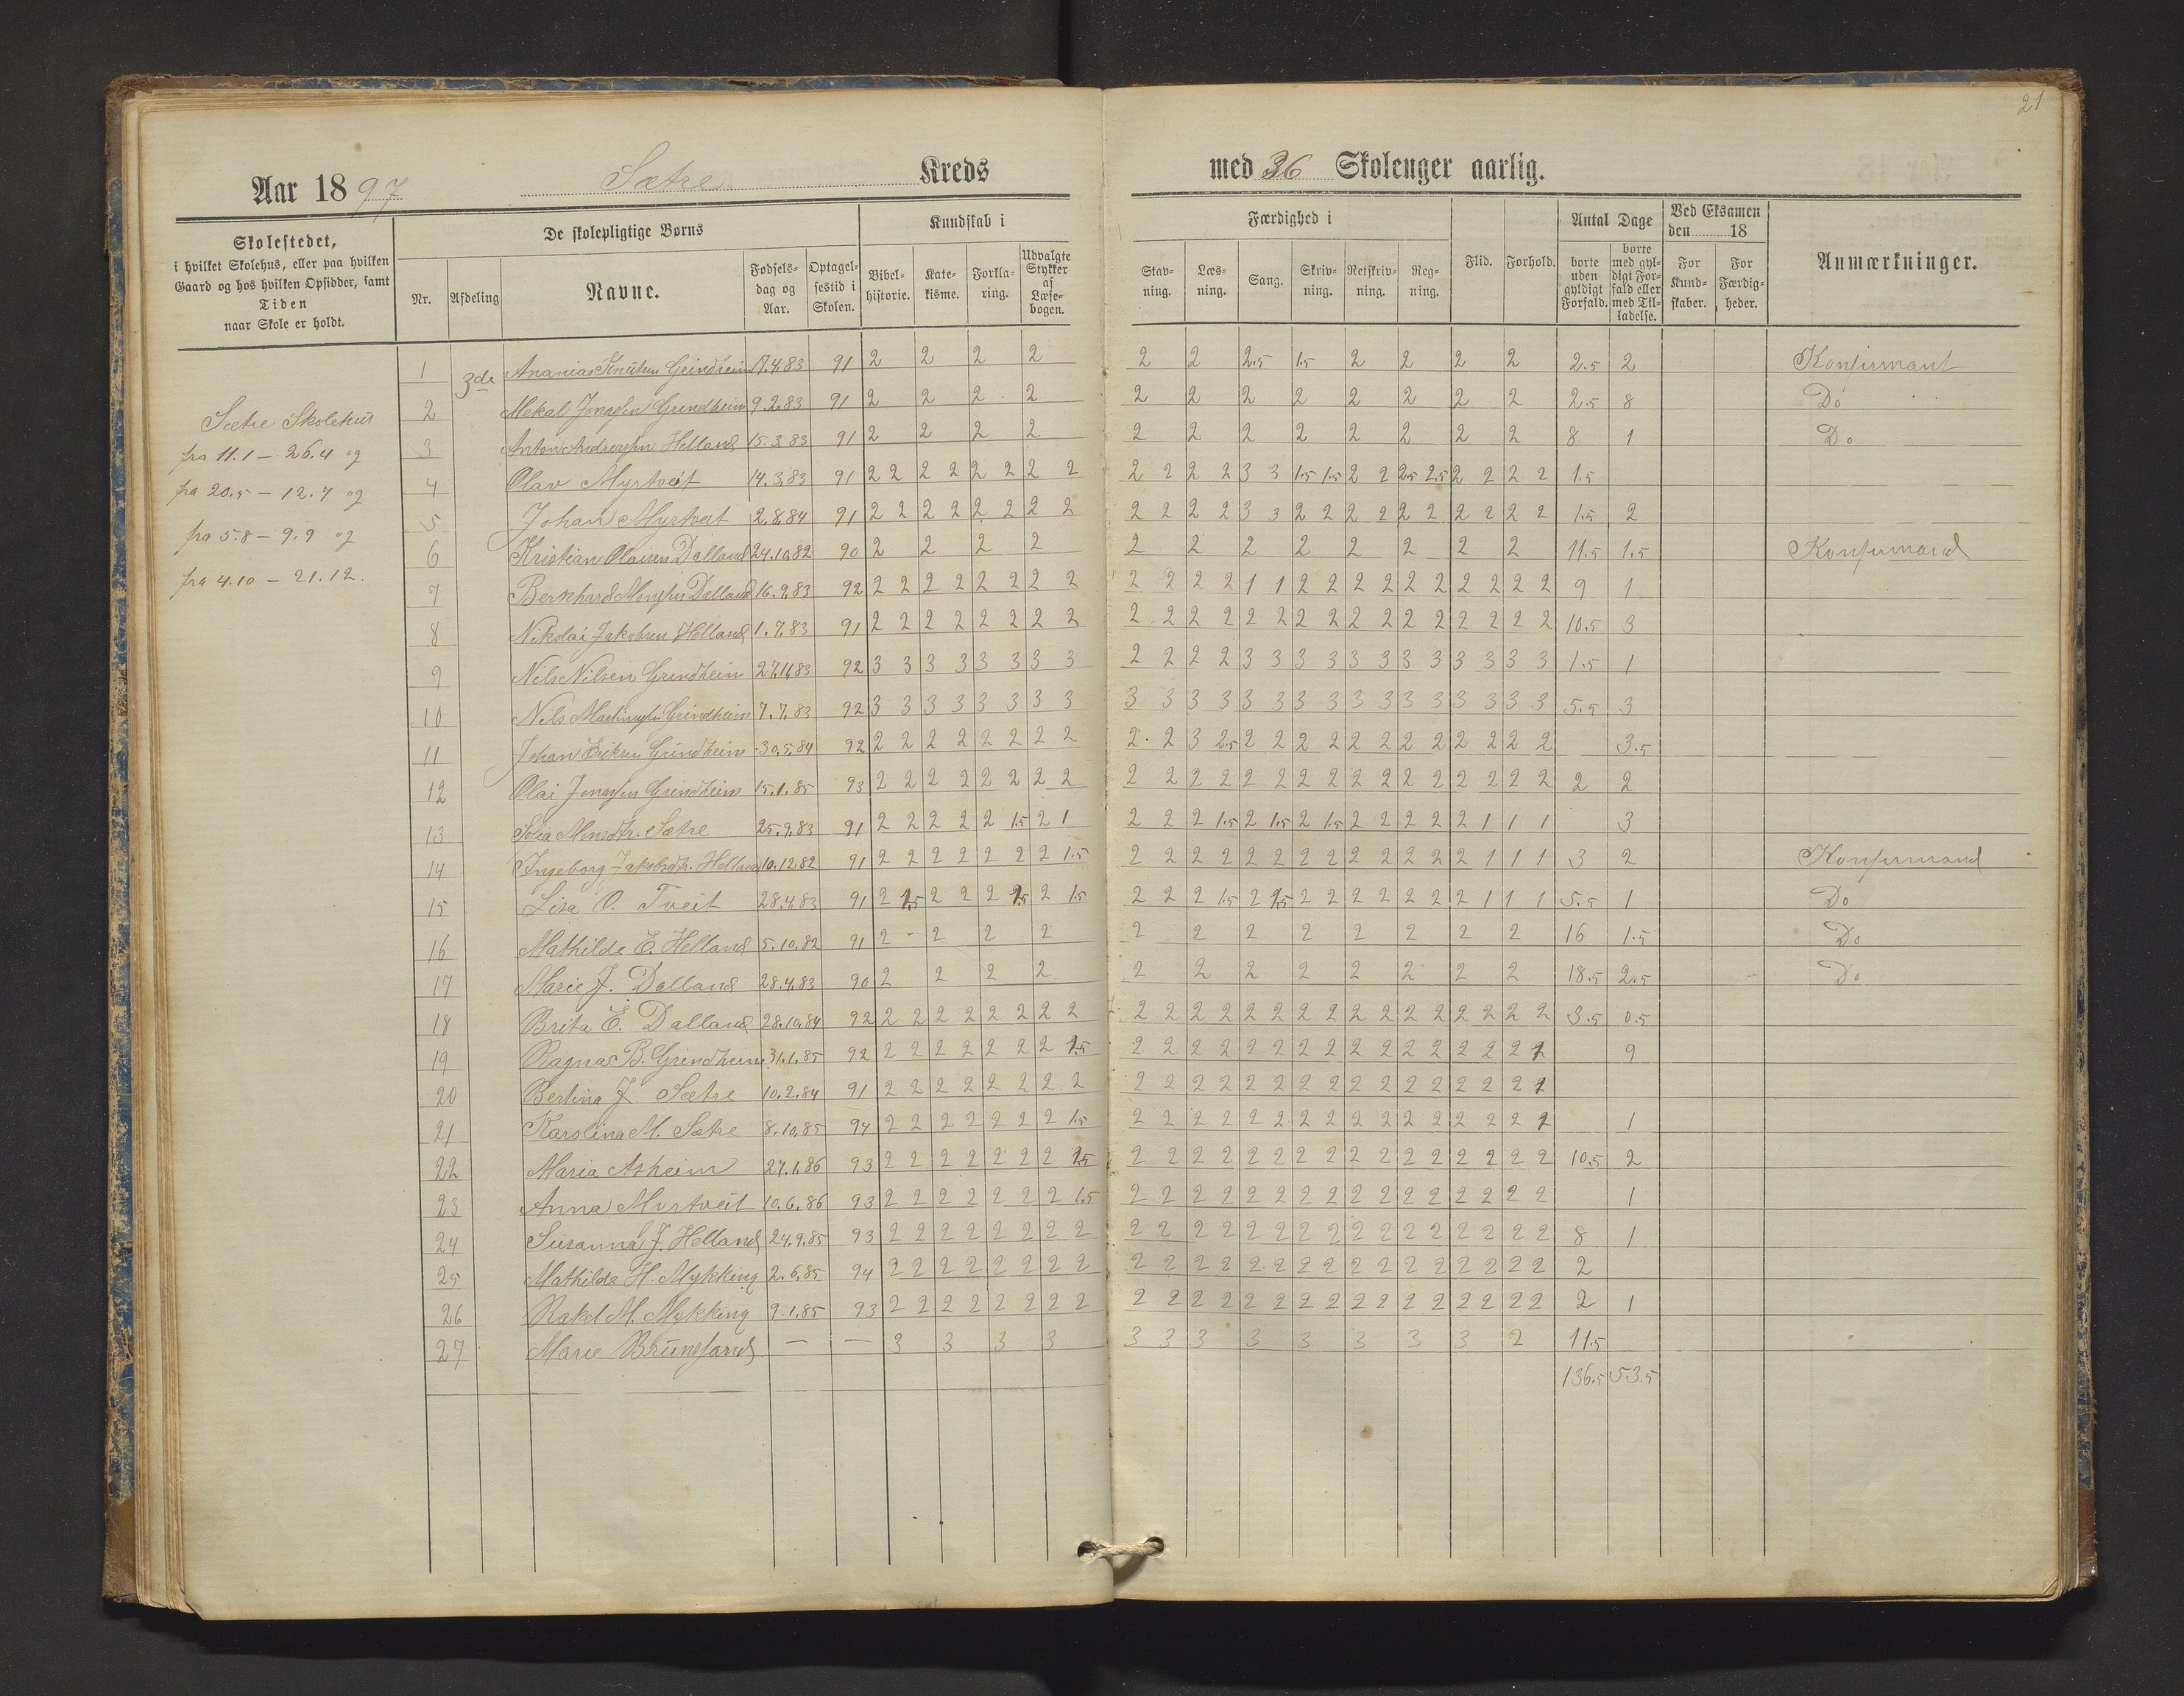 21
Aar 1897 Sætre Kreds med 36 Skoleuger aarlig.
Skolestedet,
i hvilket Skolehus, eller paa hvilken
Gaard og hos hvilken Opsidder, samt
Tiden
naar Skole er holdt.
De skolepligtige Børns
Nr.
Afdeling
Navne.
Fødsels-
dag og
Aar.
Optagel-
sestid i
Skolen.
Kundskab i
Bibel-
historie.
Kate-
kisme.
Forkla-
ring.
Udvalgte
Stykker
af
Læse-
bogen.
Færdighed i
Stav-
ning.
Læs-
ning.
Sang.
Skriv-
ning.
Retskriv-
ning.
Reg-
ning.
Flid.
Forhold.
Antal Dage
borte
uden
gyldigt
Forfald.
borte
med gyl-
digt For-
fald eller
med Til-
ladelse.
Ved Eksamen
den 18
For
Kund-
skaber.
For
Færdig-
heder.
Anmærkninger.
Sætre Skolehus
fra 11.1 - 26.4 og
fra 20.5 - 12.7 og
fra 5.8 - 9.9 og
fra 4.10 - 21.12.
1 3de Ananias Knutsen Grindheim 17.4.83 91 2 2 2 2 2 2 2.5 1.5 2 2 2 2 2.5 2 Konfirmant
2 Mekal Jonassen Grindheim 9.2.83 91 2 2 2 2 2 2 2 2 2 2 2 2 2.5 8 Do
3 Anton Andreassen Helland 15.3.83 91 2 2 2 2 2 2 2 2 2 2 2 2 8 1 Do
4 Olav Myrtveit 14.3.83 91 2 2 2 2 2 2 2 2 2 2 2 2 3 3 1.5 1.5 2 2 2.5 2.5 2 2 2 2 1.5
5 Johan Myrtveit 2.8.84 91 2 2 2 2 2 2 2 2 2 2 2 2 3 3 2 2 2 2 2 2 2 2 2 2 1.5 2
6 Kristian Olaisen Dalland 24.10.82 90 2 2 2 2 2 2 2 2 2 2 2 2 11.5 1.5 Konfirmand
7 Bernhard Monssen Dalland 16.9.83 92 2 2 2 2 2 2 2 2 2 2 2 2 1 1 2 2 2 2 2 2 2 2 2 2 9 1
8 Nikolai Jakobsen Helland 1.7.83 91 2 2 2 2 2 2 2 2 2 2 2 2 2 2 2 2 2 2 2 2 2 2 2 2 10.5 3
9 Nels Nilsen Grindheim 27.11.83 92 3 3 3 3 3 3 3 3 2 2 2 2 3 3 3 3 3 3 3 3 3 3 3 3 1.5 1
10 Nils Martinussen Grindheim 7.7.83 92 3 3 3 3 3 3 3 3 3 3 3 3 3 3 3 3 3 3 3 3 3 3 3 3 5.5 3
11 Johan Eriksen Grindheim 30.5.84 92 2 2 2 2 2 2 2 2 2 2 3 2.5 2 2 2 2 2 2 2 2 2 2 2 2 3.5
12 Olai Jonassen Grindheim 15.1.85 93 2 2 2 2 2 2 2 2 2 2 2 2 2 2 2 2 2 2 2 2 2 2 2 2 2 2
13 Sofia Monsdtr. Sætre 25.9.83 91 2 2 2 2 2 1.5 2 1 2 2 2 1.5 2 1.5 2 1.5 2 2 2 2 2 1 1 1 3
14 Ingeborg Jakobsdtr. Helland 10.12.82 91 2 2 2 2 2 2 2 1.5 2 2 2 2 2 2 2 2 2 2 2 2 2 1 1 1 3 2 Konfirmand
15 Lisa O. Tveit 28.4.83 91 2 1.5 2 2 2 1.5 2 1.5 2 2 2 1.5 2 1.5 2 2 2 2 2 2 2 1 1 1 5.5 1 Do
16 Mathilde E. Helland 5.10.82 91 2 2 2 2 2 2 2 2 2 2 2 2 16 1.5 Do
17 Marie J. Dalland 28.4.83 90 2 2 2 2 2 2 2 2 2 2 2 2 18.5 2.5 Do
18 Brita E. Dalland 28.10.84 92 2 2 2 2 2 2 2 2 2 2 2 2 2 2 2 2 2 2 2 2 2 2 2 2 3.5 0.5
19 Ragna B. Grindheim 31.1.85 92 2 2 2 2 2 2 2 1.5 2 2 2 2 2 2 2 2 2 2 2 2 2 2 2 1 9
20 Bertina J. Sætre 10.2.84 91 2 2 2 2 2 2 2 2 2 2 2 2 2 2 2 2 2 2 2 2 2 2 2 1
21 Karolina M. Sætre 8.10.85 94 2 2 2 2 2 2 2 1.5 2 2 2 2 2 2 2 2 2 2 2 2 2 2 2 1 1
22 Maria Asheim 27.1.86 93 2 2 2 2 2 2 2 1.5 2 2 2 2 2 2 2 2 2 2 2 2 2 2 2 2 10.5 2
23 Anna Myrtveit 10.6.86 93 2 2 2 2 2 2 2 1.5 2 2 2 2 2 2 2 2 2 2 2 2 2 2 2 2 1
24 Susanna J. Helland 24.9.85 93 2 2 2 2 2 2 2 2 2 2 2 2 2 2 2 2 2 2 2 2 2 2 2 2 8 1
25 Mathilde H. Mykking 2.6.85 94 2 2 2 2 2 2 2 2 2 2 2 2 2 2 2 2 2 2 2 2 2 2 2 2 2
26 Rakel M. Mykking 9.1.85 93 2 2 2 2 2 2 2 2 2 2 2 2 2 2 2 2 2 2 2 2 2 2 2 2 2 1
27 Marie — — 3 3 3 3 3 3 3 3 3 3 3 3 2 11.5
136.5 53.5